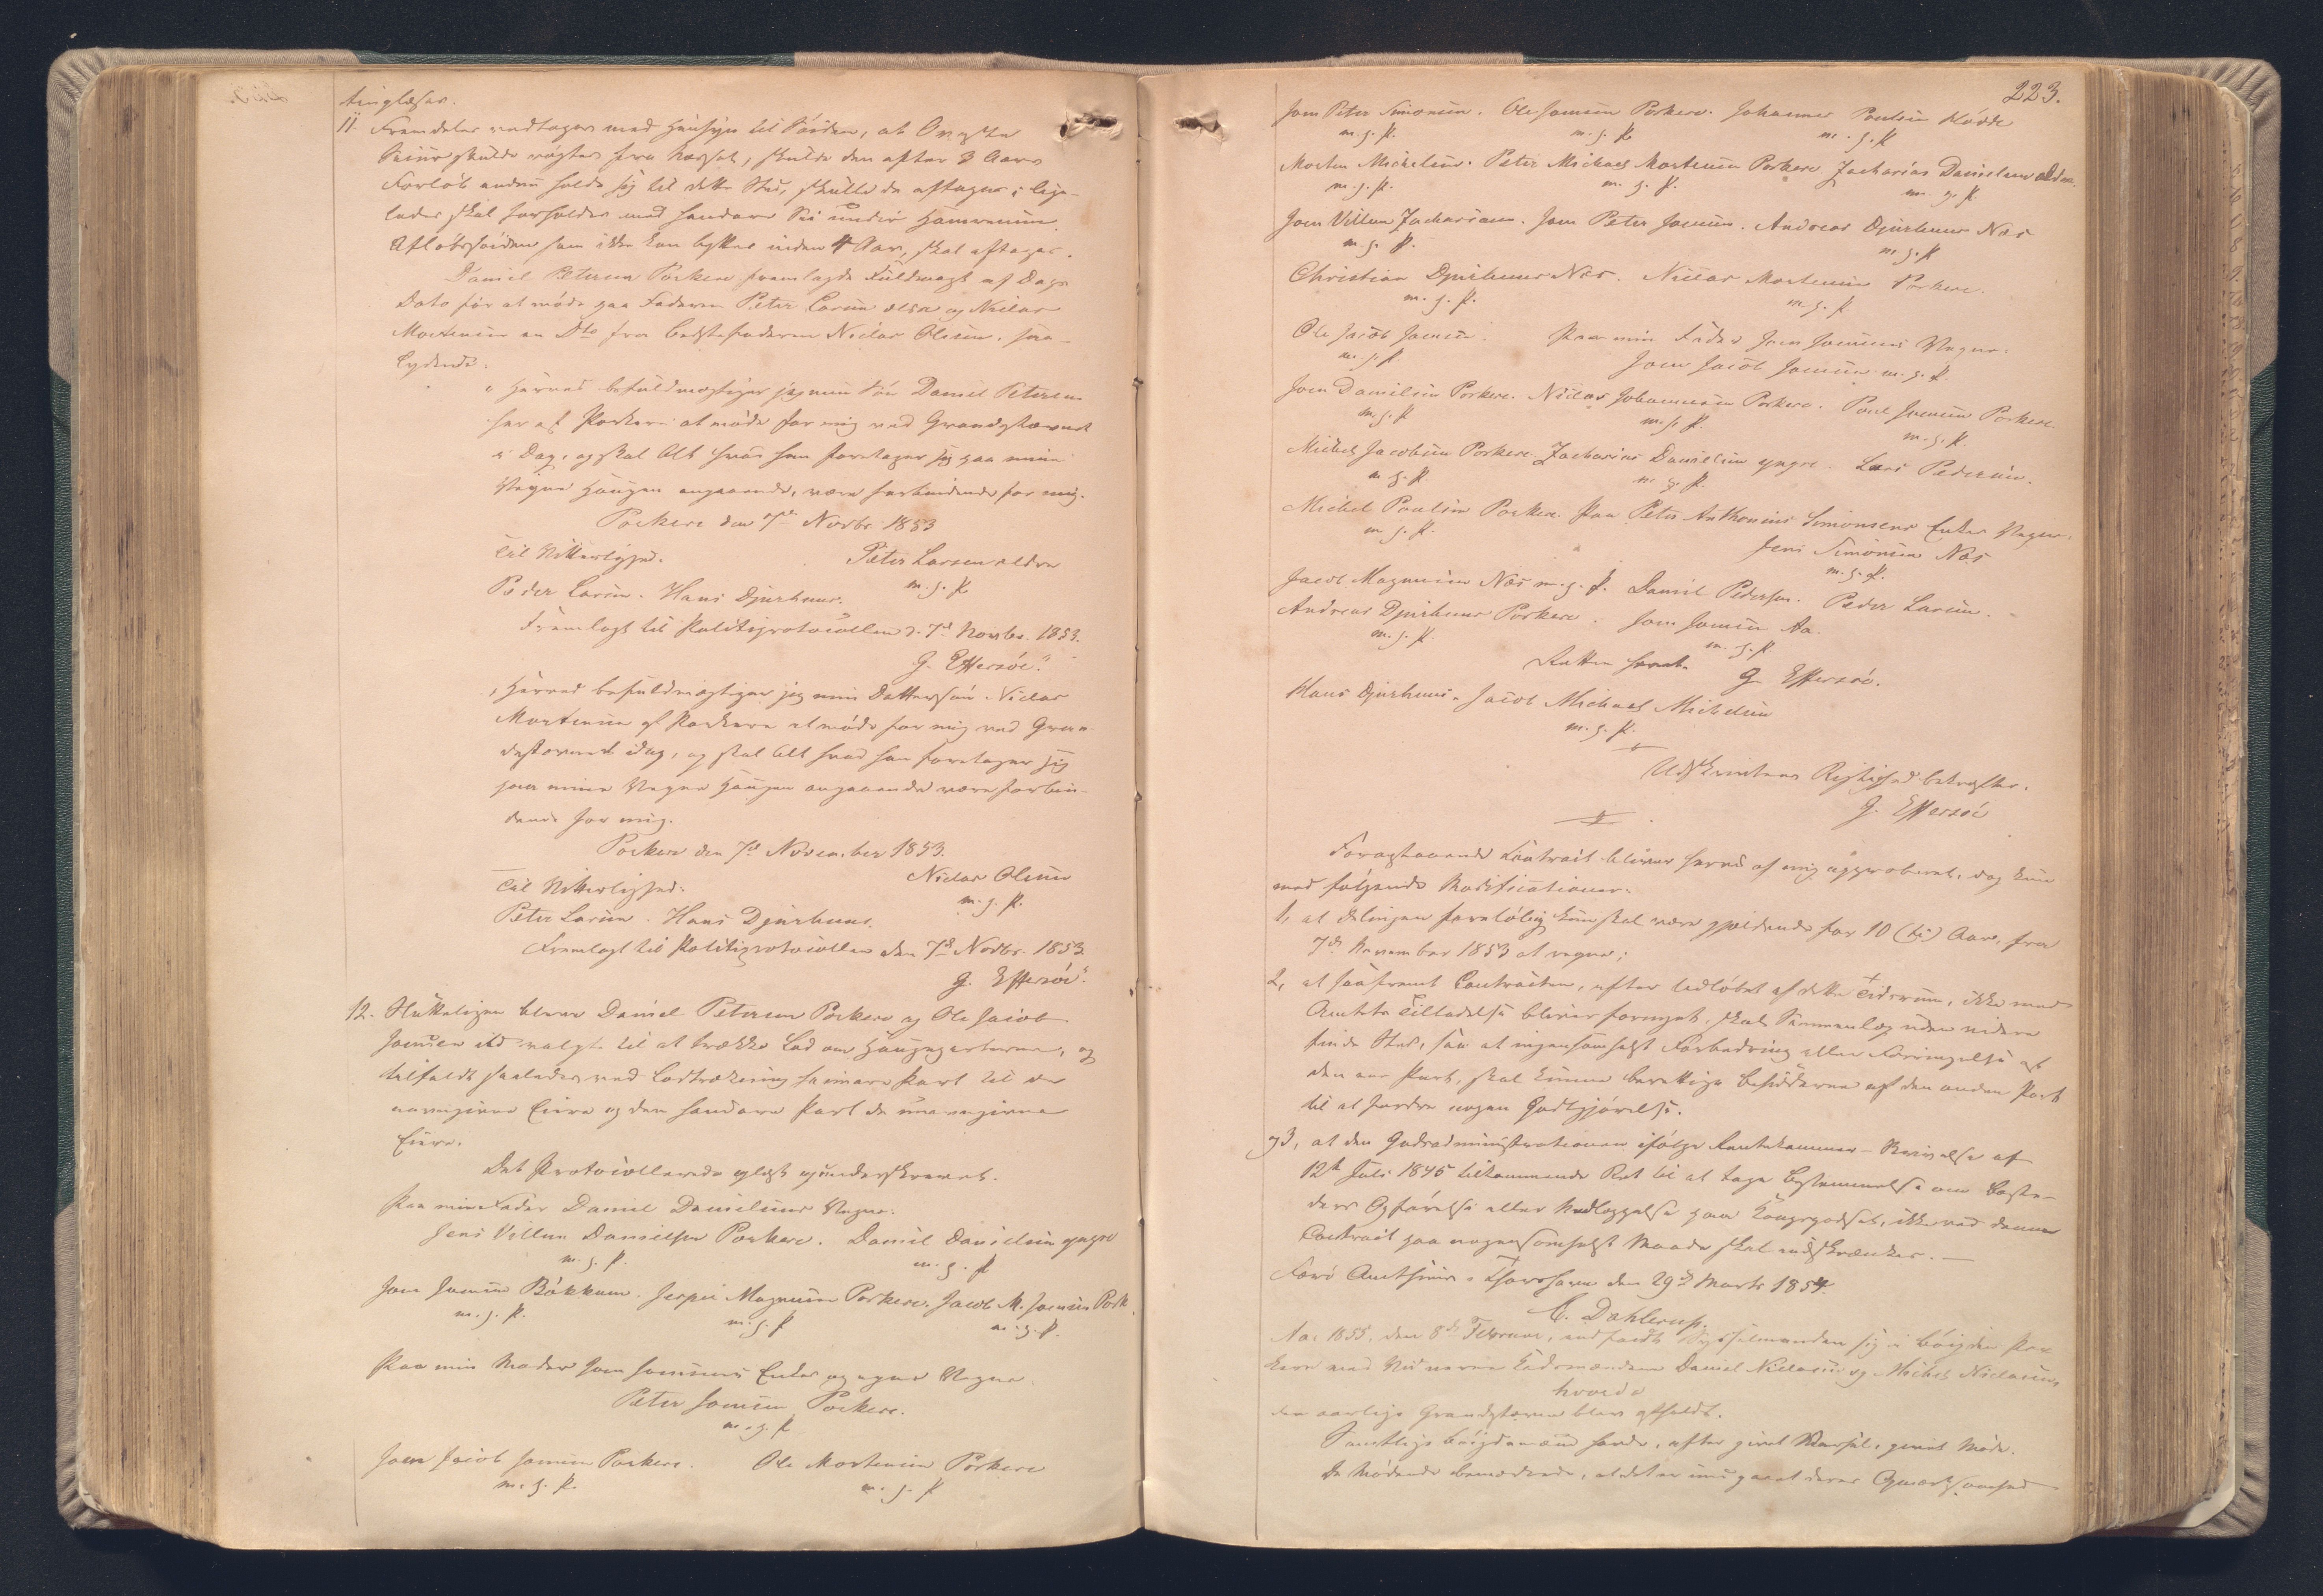 tinglæses.
11. Fremdeles vedtages med Hensyn til Søiden, at Om
Forløb anden holde sig til dette Sted, skulle de aftages; lige-
ledes skal forholdes med søndare Sei under Hamrenne.
som ikke kan bygtes inden 4 Aar, skal aftages.
Daniel Petersen Porkere fremlagde Fuldmagt af Dags
Dato for at møde paa Faderen Peter Larsen ældre og Niclas
Mortensen en Dto fra Bedstefaderen Niclas Olesen, saa-
lydende:
"Herved befuldmægtiger jeg min Søn Daniel Petersen
her af Porkere at møde for mig ved Grandestævnet
i Dag, og skal Alt hvad han foretager sig paa mine
Vegne Haugen angaaende, være forbindende for mig.
Porkere den 7de Novbr. 1853
Til Vitterlighed. Peter Larsen ældre
Peder Larsen. Hans Djurhuus. m. f. P.
Fremlagt til Politiprotocollen d. 7d Novbr. 1853.
G. Effersöe."
"Herved befuldmægtiger jeg min Dattersøn Niclas
Mortensen af Porkere at møde for mig ved Gran-
destævnet idag, og skal Alt hvad han foretager sig
paa mine Vegne Haugen angaaende være forbin-
dende for mig.
Porkere den 7d November 1853.
Til Vitterlighed: Niclas Olesen
Peter Larsen. Hans Djurhuus. m. f. P.
Fremlagt til Politiprotocollen den 7d Novbr. 1853
G. Effersöe."
12. Sluttelig blev Daniel Petersen Porkere og Ole Jacob
Joensen udvalgt til at trække Lod om Haugeparterne, og
tilfaldt saaledes ved Lodtrækning heimare Part til de
navngivne Eiere og den søndare Part de unavngivne
Eiere.
Det Protocollerede oplæst og underskrevet.
Paa min Fader Daniel Danielsens Vegne:
Jens Villum Danielsen Porkere. Daniel Danielsen yngre
m. f. P. m. f. P
Joen Joensen Bókkum. Jesper Magnusen Porkere. Jacob M. Joensen Pork.
m. f. P. m. f. P m. f. P.
Paa min Moder Joen Joensens Enkes og egne Vegne.
Peter Joensen Porkere.
m. f. P
Joen Jacob Joensen Porkere. Ole Mortensen Porkere
m. f. P. m. f. P
223.
Joen Peter Simonsen. Ole Joensen Porkere. Johannes Poulsen
m. f. P. m. f. P. m. f. P
Morten Michelsen. Peter Michael Mortensen Porkere. Zacharias Danielsen ældre.
m. f. P. m. f. P. m. f. P.
Joen Villum Zachariasen. Joen Peter Joensen. Andreas Djurhuus Næs
m. f. P. m. f. P
Christian Djurhuus Næs. Niclas Mortensen Porkere.
m. f. P. m. f. P
Ole Jacob Joensen. Paa min Fader Joen Joensens Vegne:
m. f. P Joen Jacob Joensen m. f. P.
Joen Danielsen Porkere. Niclas Johannesen Porkere. Poul Joensen Porkere.
m. f. P m. f. P. m. f. P.
Michel Jacobsen Porkere. Zacharias Danielsen yngre. Lars Pedersen.
m. f. P. m. f. P.
Michel Poulsen Porkere. Paa Peter Anthonius Simonsens Enkes Vegne.
m. f. P. Jens Simonsen Næs
m. f. P.
Jacob Magnusen Næs m. f. P. Daniel Pedersen. Peder Larsen.
Andreas Djurhuus Porkere. Joen Joensen Aa.
m. f. P. m. f. P
Retten hævet. G. Effersöe.
Hans Djurhuus. Jacob Michael Michelsen
m. f. P.
Udskriftens Rigtighed bekræftes.
G. Effersöe
Foregstaaende Contract bliver herved af mig approberet, dog kun
med følgende Modificationer:
1, at Delingen foreløbig kun skal være gjældende for 10 (ti) Aar, fra
7de November 1853 at regne;
2, at saafremt Contracten, efter Udløbet af dette Tidsrum, ikke med
Amtets Tilladelse bliver fornyet, skal Sammenlæg uden videre
finde Sted, saa at ingensomhelst Forbedring eller Forringelse af
den ene Part, skal kunne berettige Besidderne af den anden Part
til at fordre nogen Godtgjørelse.
og 3, at den Godsadministrationen ifølge Rentekammer-Skrivelse af
12te Juli 1845 tilkommende Ret til at tage Bestemmelse om Boste-
ders Opførelse eller Nedlæggelse paa Kongsgodset, ikke ved denne
Contract paa nogensomhelst Maade skal indskrænkes.
Færø Amthuus i Thorshavn den 29de Marts 1854.
C. Dahlerup.
Aar 1855, den 8de Februar, indfandt Sysselmanden sig i Bøigden Por-
kere med Vidnerne Ledsmændene Daniel Niclasen og Michel Niclasen,
hvorda
den aarlige Grandestævne blev afholdt.
Samtlige Bøigdemænd havde, efter givet Varsel, givet Møde.
De Mødende bemærkede, at det er undgaaet deres Opmærksomhed